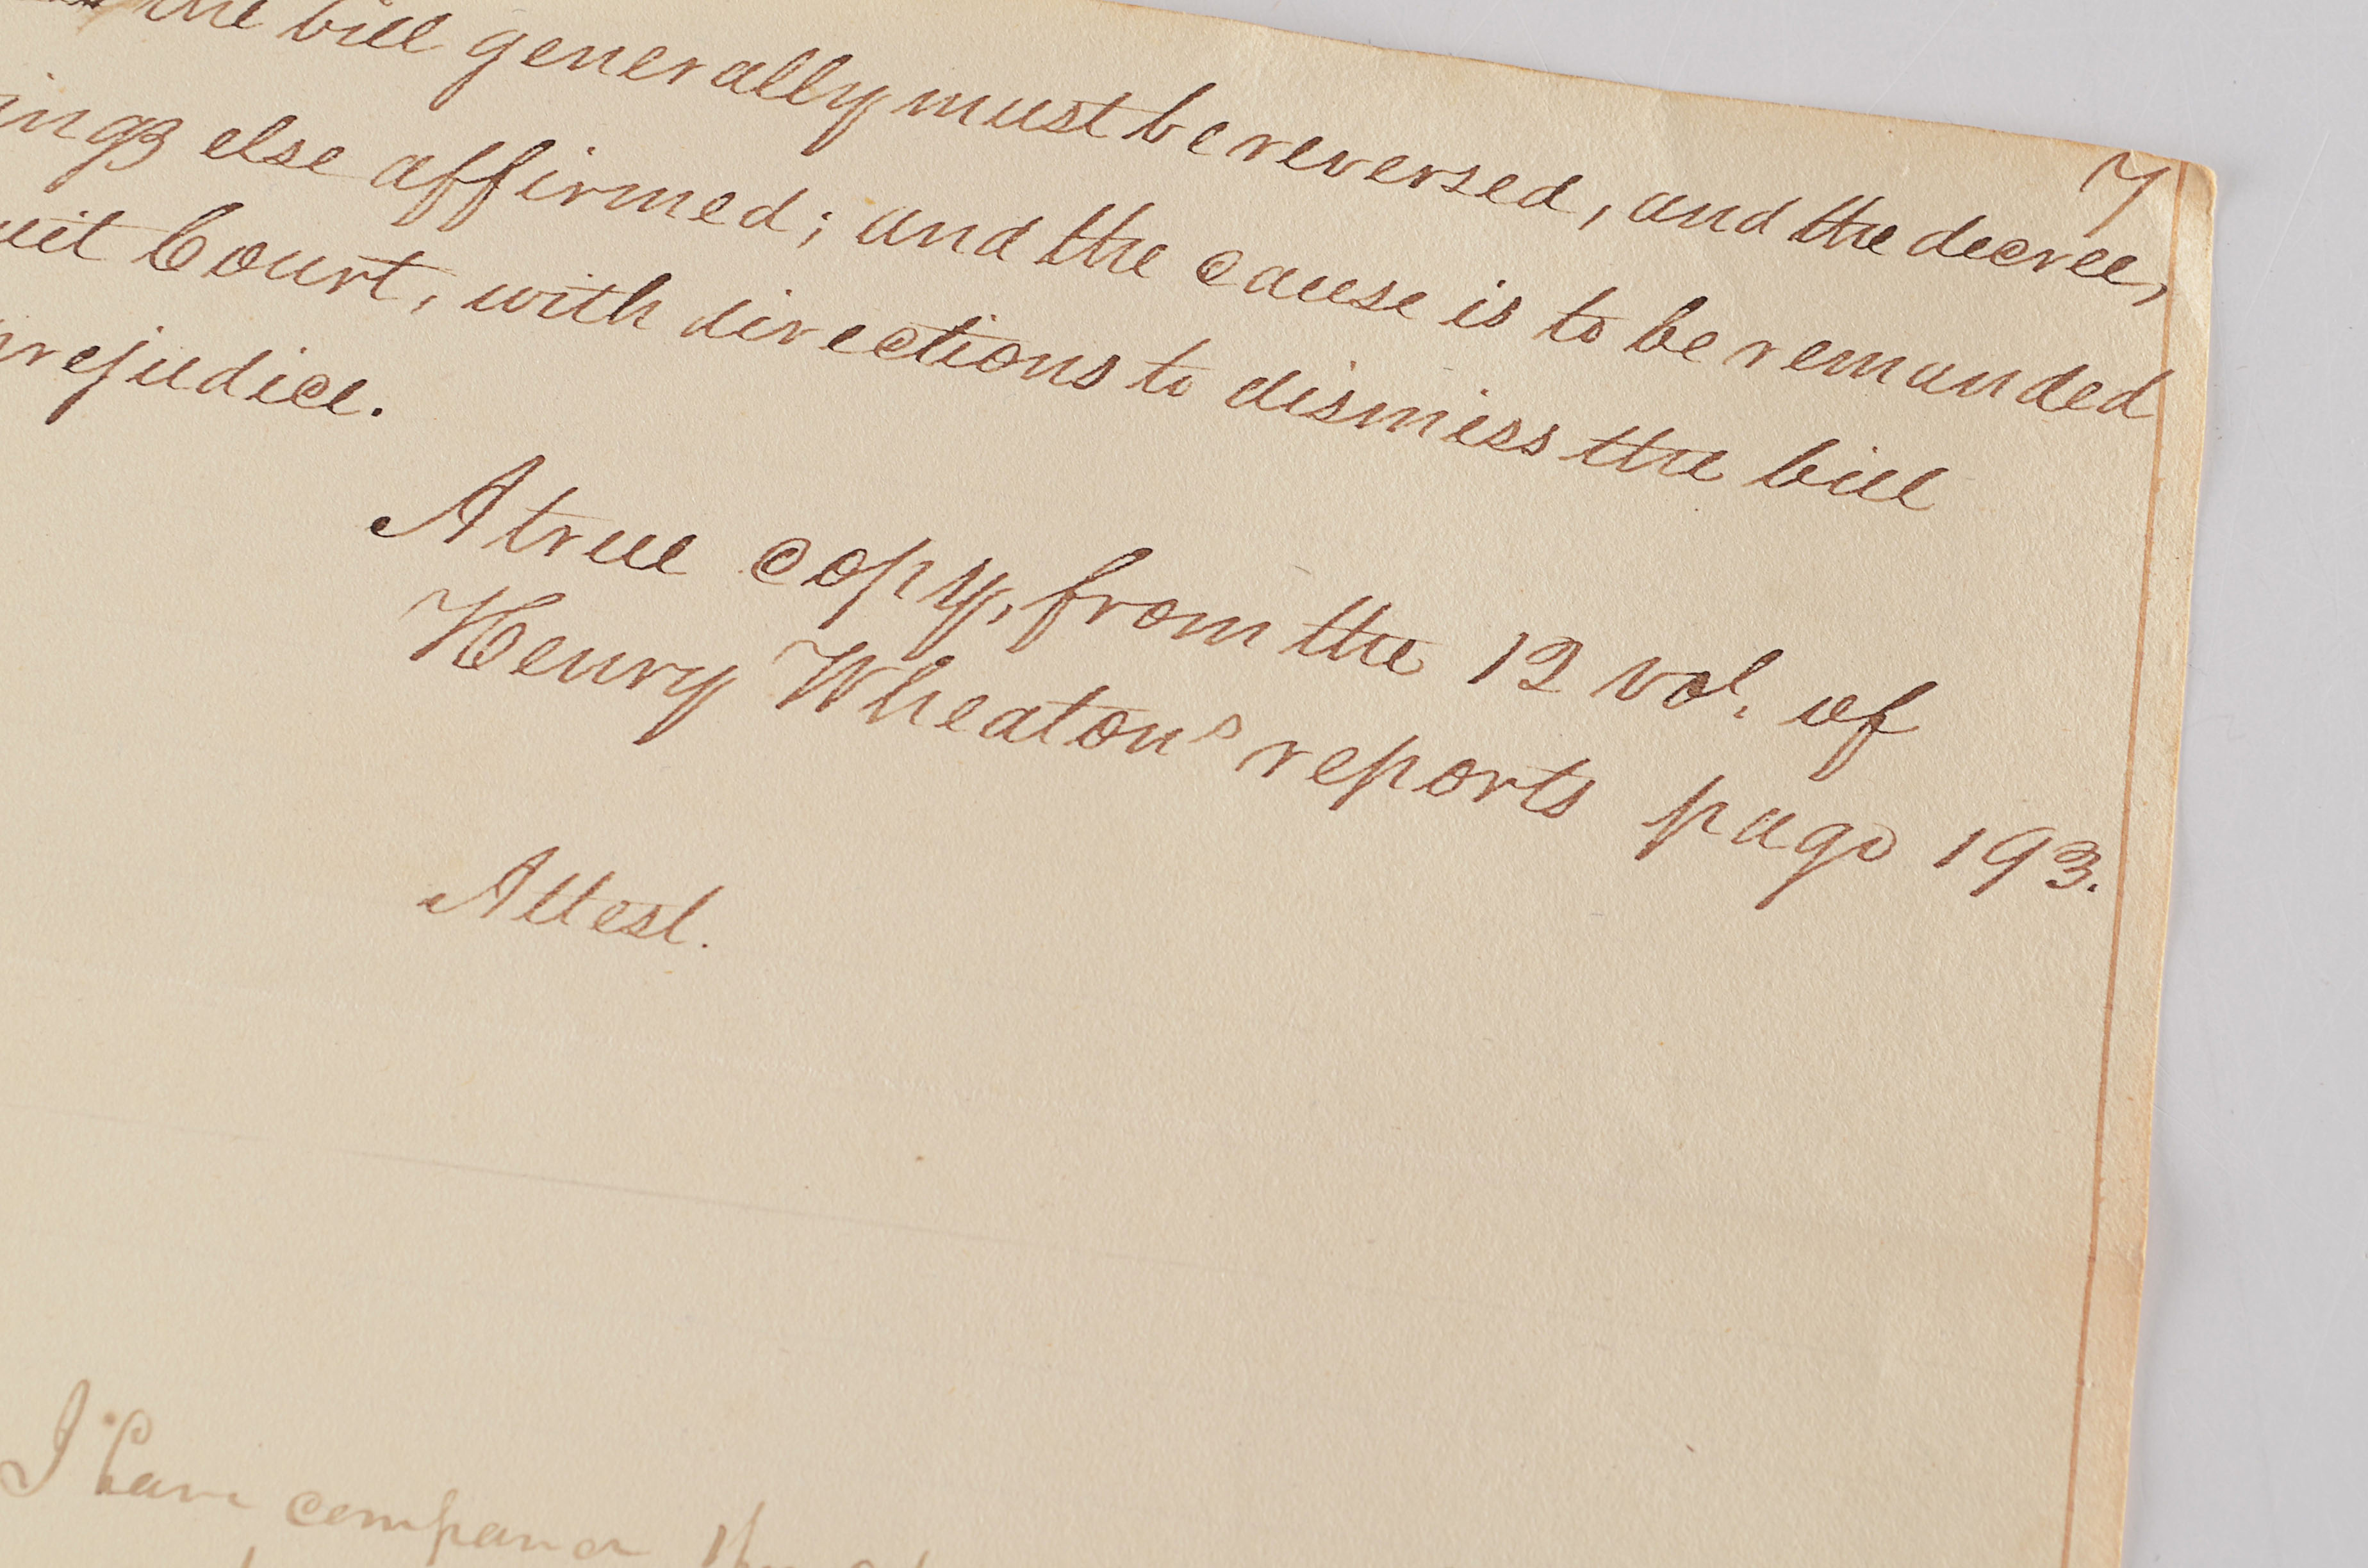 7
the bill generally must be reversed, and the decree,
ings else affirmed; and the cause is to be remanded
uit Court, with directions to dismiss the bill
prejudice.
A true copy, from the 12 vol. of
Henry Wheatons reports page 193.
Attest.
I have compared the